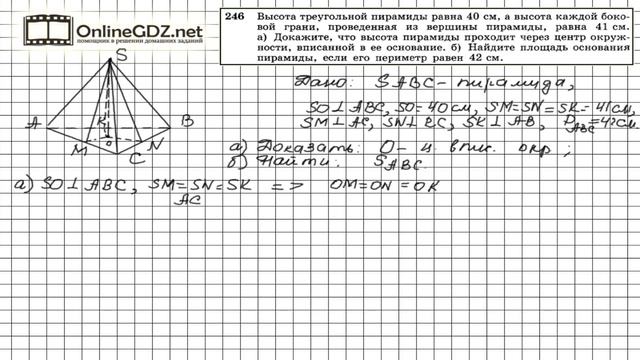 OnlineGDZ.net
помощник в решении домашних заданий
246 Высота треугольной пирамиды равна 40 см, а высота каждой боко-
вой грани, проведенная из вершины пирамиды, равна 41 см.
а) Докажите, что высота пирамиды проходит через центр окруж-
ности, вписанной в ее основание. б) Найдите площадь основания
пирамиды, если его периметр равен 42 см.
Дано: SABC - пирамида,
SO⊥ABC, SO=40см, SM=SN=SK=41см,
SM⊥AC, SN⊥BC, SK⊥AB, P ABC=42см
а) Доказать: O - ц. впис. окр;
б) Найти: S ABC.
S
A
K
B
M
O
N
C
а) SO⊥ABC, SM=SN=SK => OM=ON=OK
AC